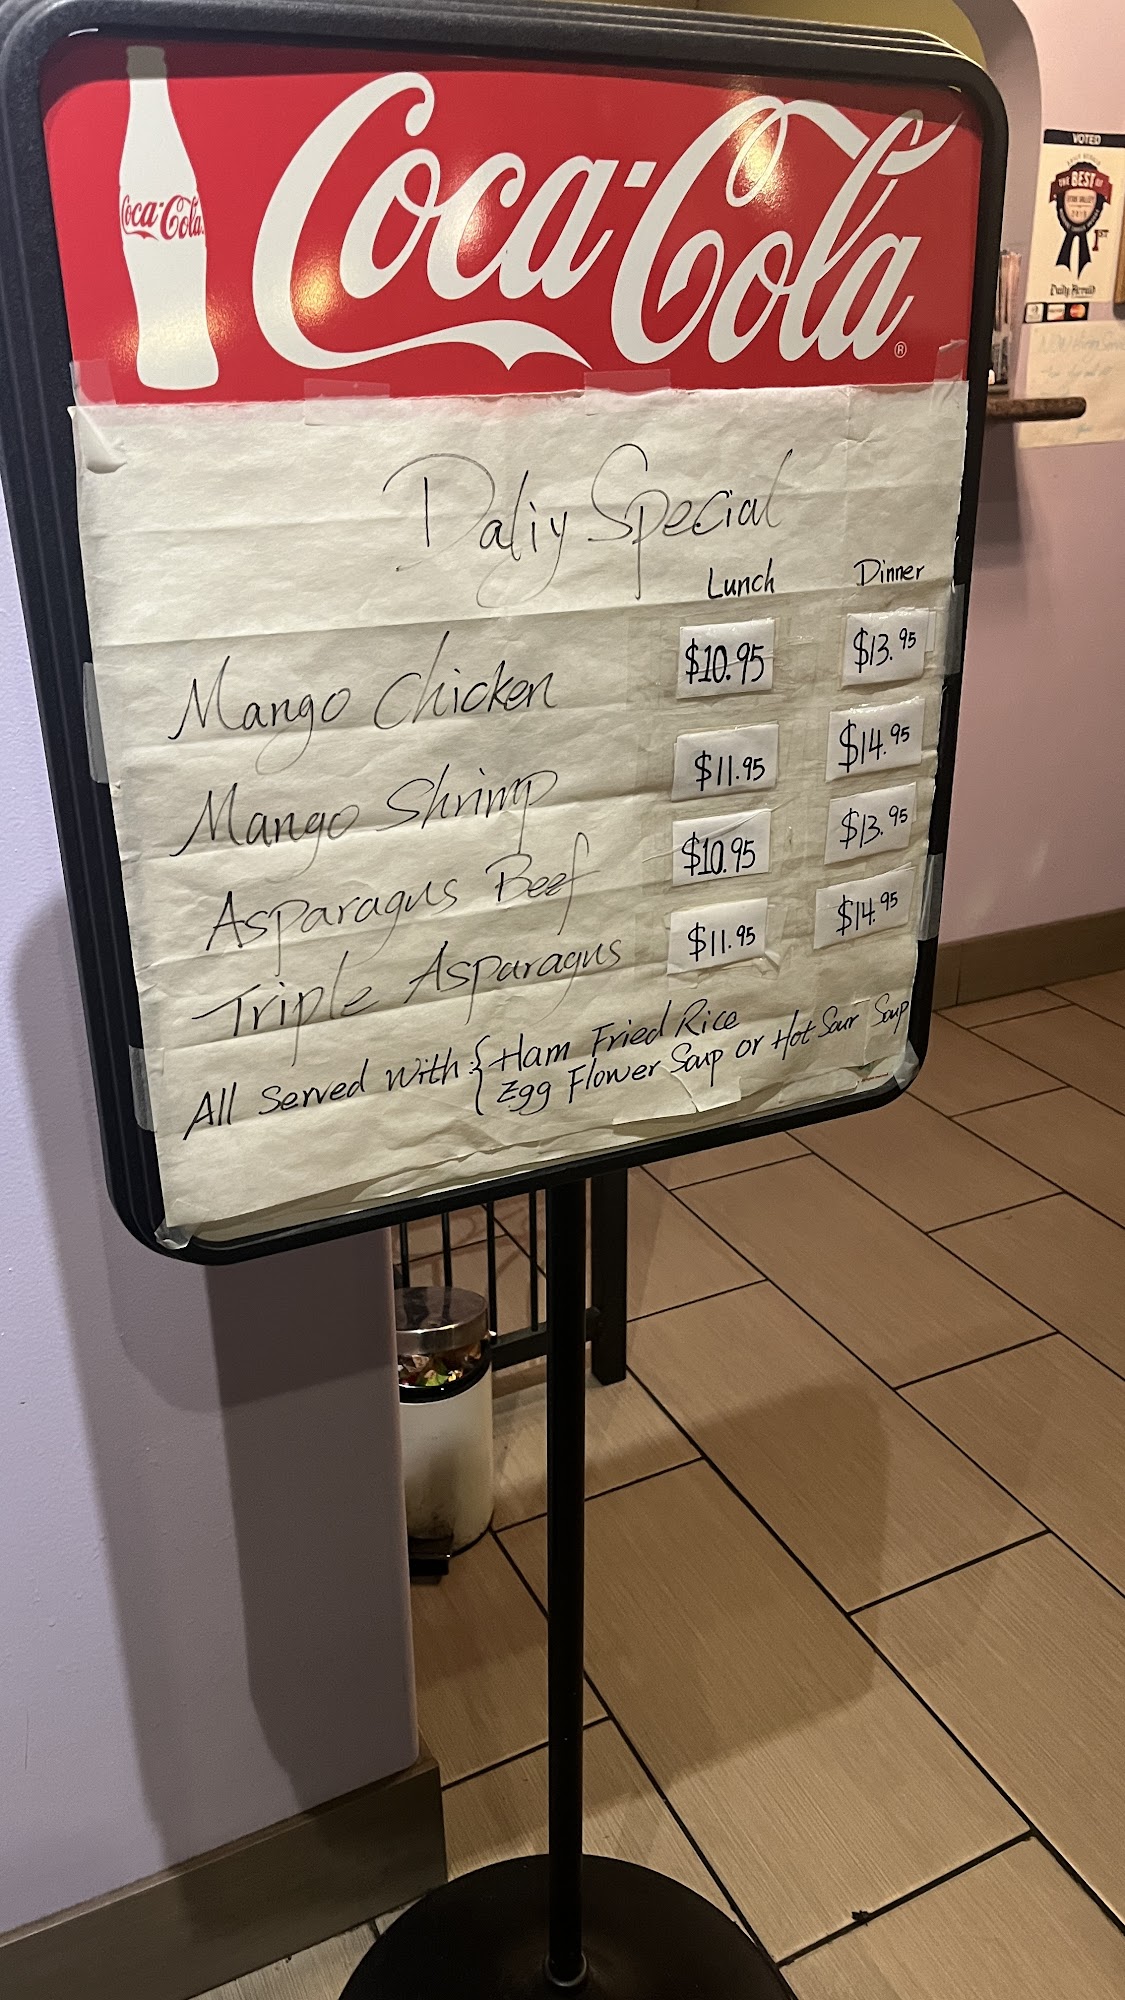 Coca-Cola
Coca-Cola®
VOTED
THE BEST OF
UTAH VALLEY
2019
1ST
Daily Herald
Daliy Special
Lunch Dinner
Mango Chicken $10.95 $13.95
Mango Shrimp $11.95 $14.95
Asparagus Beef $10.95 $13.95
Triple Asparagus $11.95 $14.95
All Served With: { Ham Fried Rice
Egg Flower Soup or Hot Sour Soup